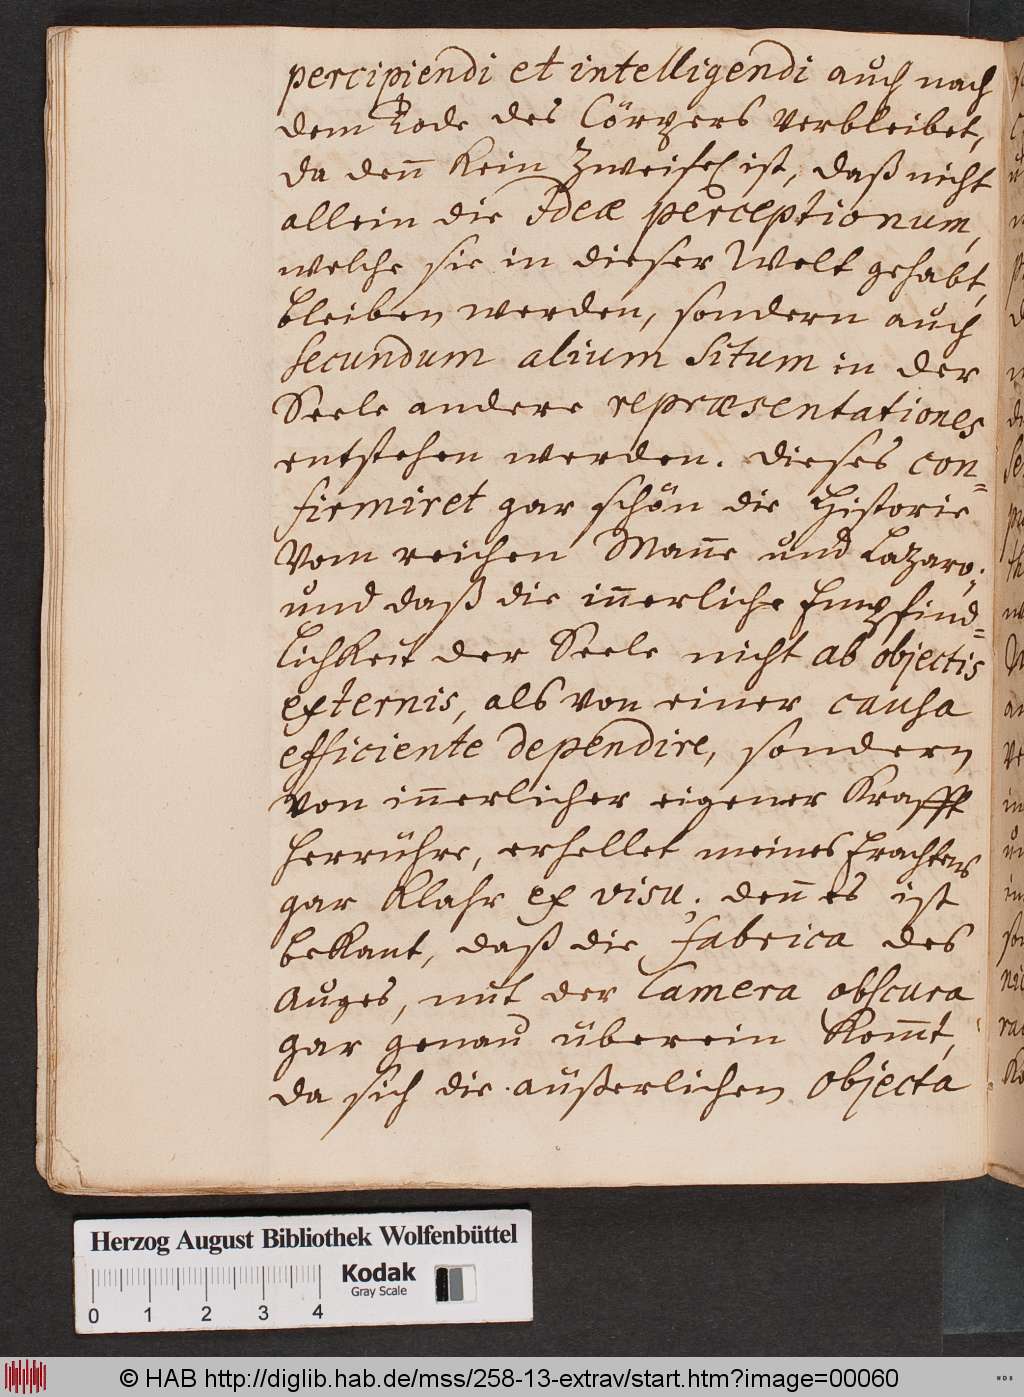 percipiendi et intelligendi auch nach
dem Tode des Cörpers verbleibet,
da deñ kein Zweifel ist, daß nicht
allein die Ideæ perceptionum,
welche sie in dieser Welt gehabt,
bleiben werden, sondern auch
secundum alium situm in der
Seele andere repræsentationes
entstehen werden. dieses con=
firmiret gar schön die Historie
vom reichen Mañe und Lazaro;
und daß die iñerliche Empfind=
lichkeit der Seele nicht ab objectis
externis, als von einer causa
efficiente dependire, sondern
von iñerlicher eigener Krafft
herrühre, erhellet meines Erachtens
gar klahr ex visu. deñ es ist
bekant, daß die fabrica des
Auges, mit der Camera obscura
gar genau überein kom̃t,
da sich die äußerlichen objecta
Herzog August Bibliothek Wolfenbüttel
Kodak
Gray Scale
0 1 2 3 4
© HAB http://diglib.hab.de/mss/258-13-extrav/start.htm?image=00060